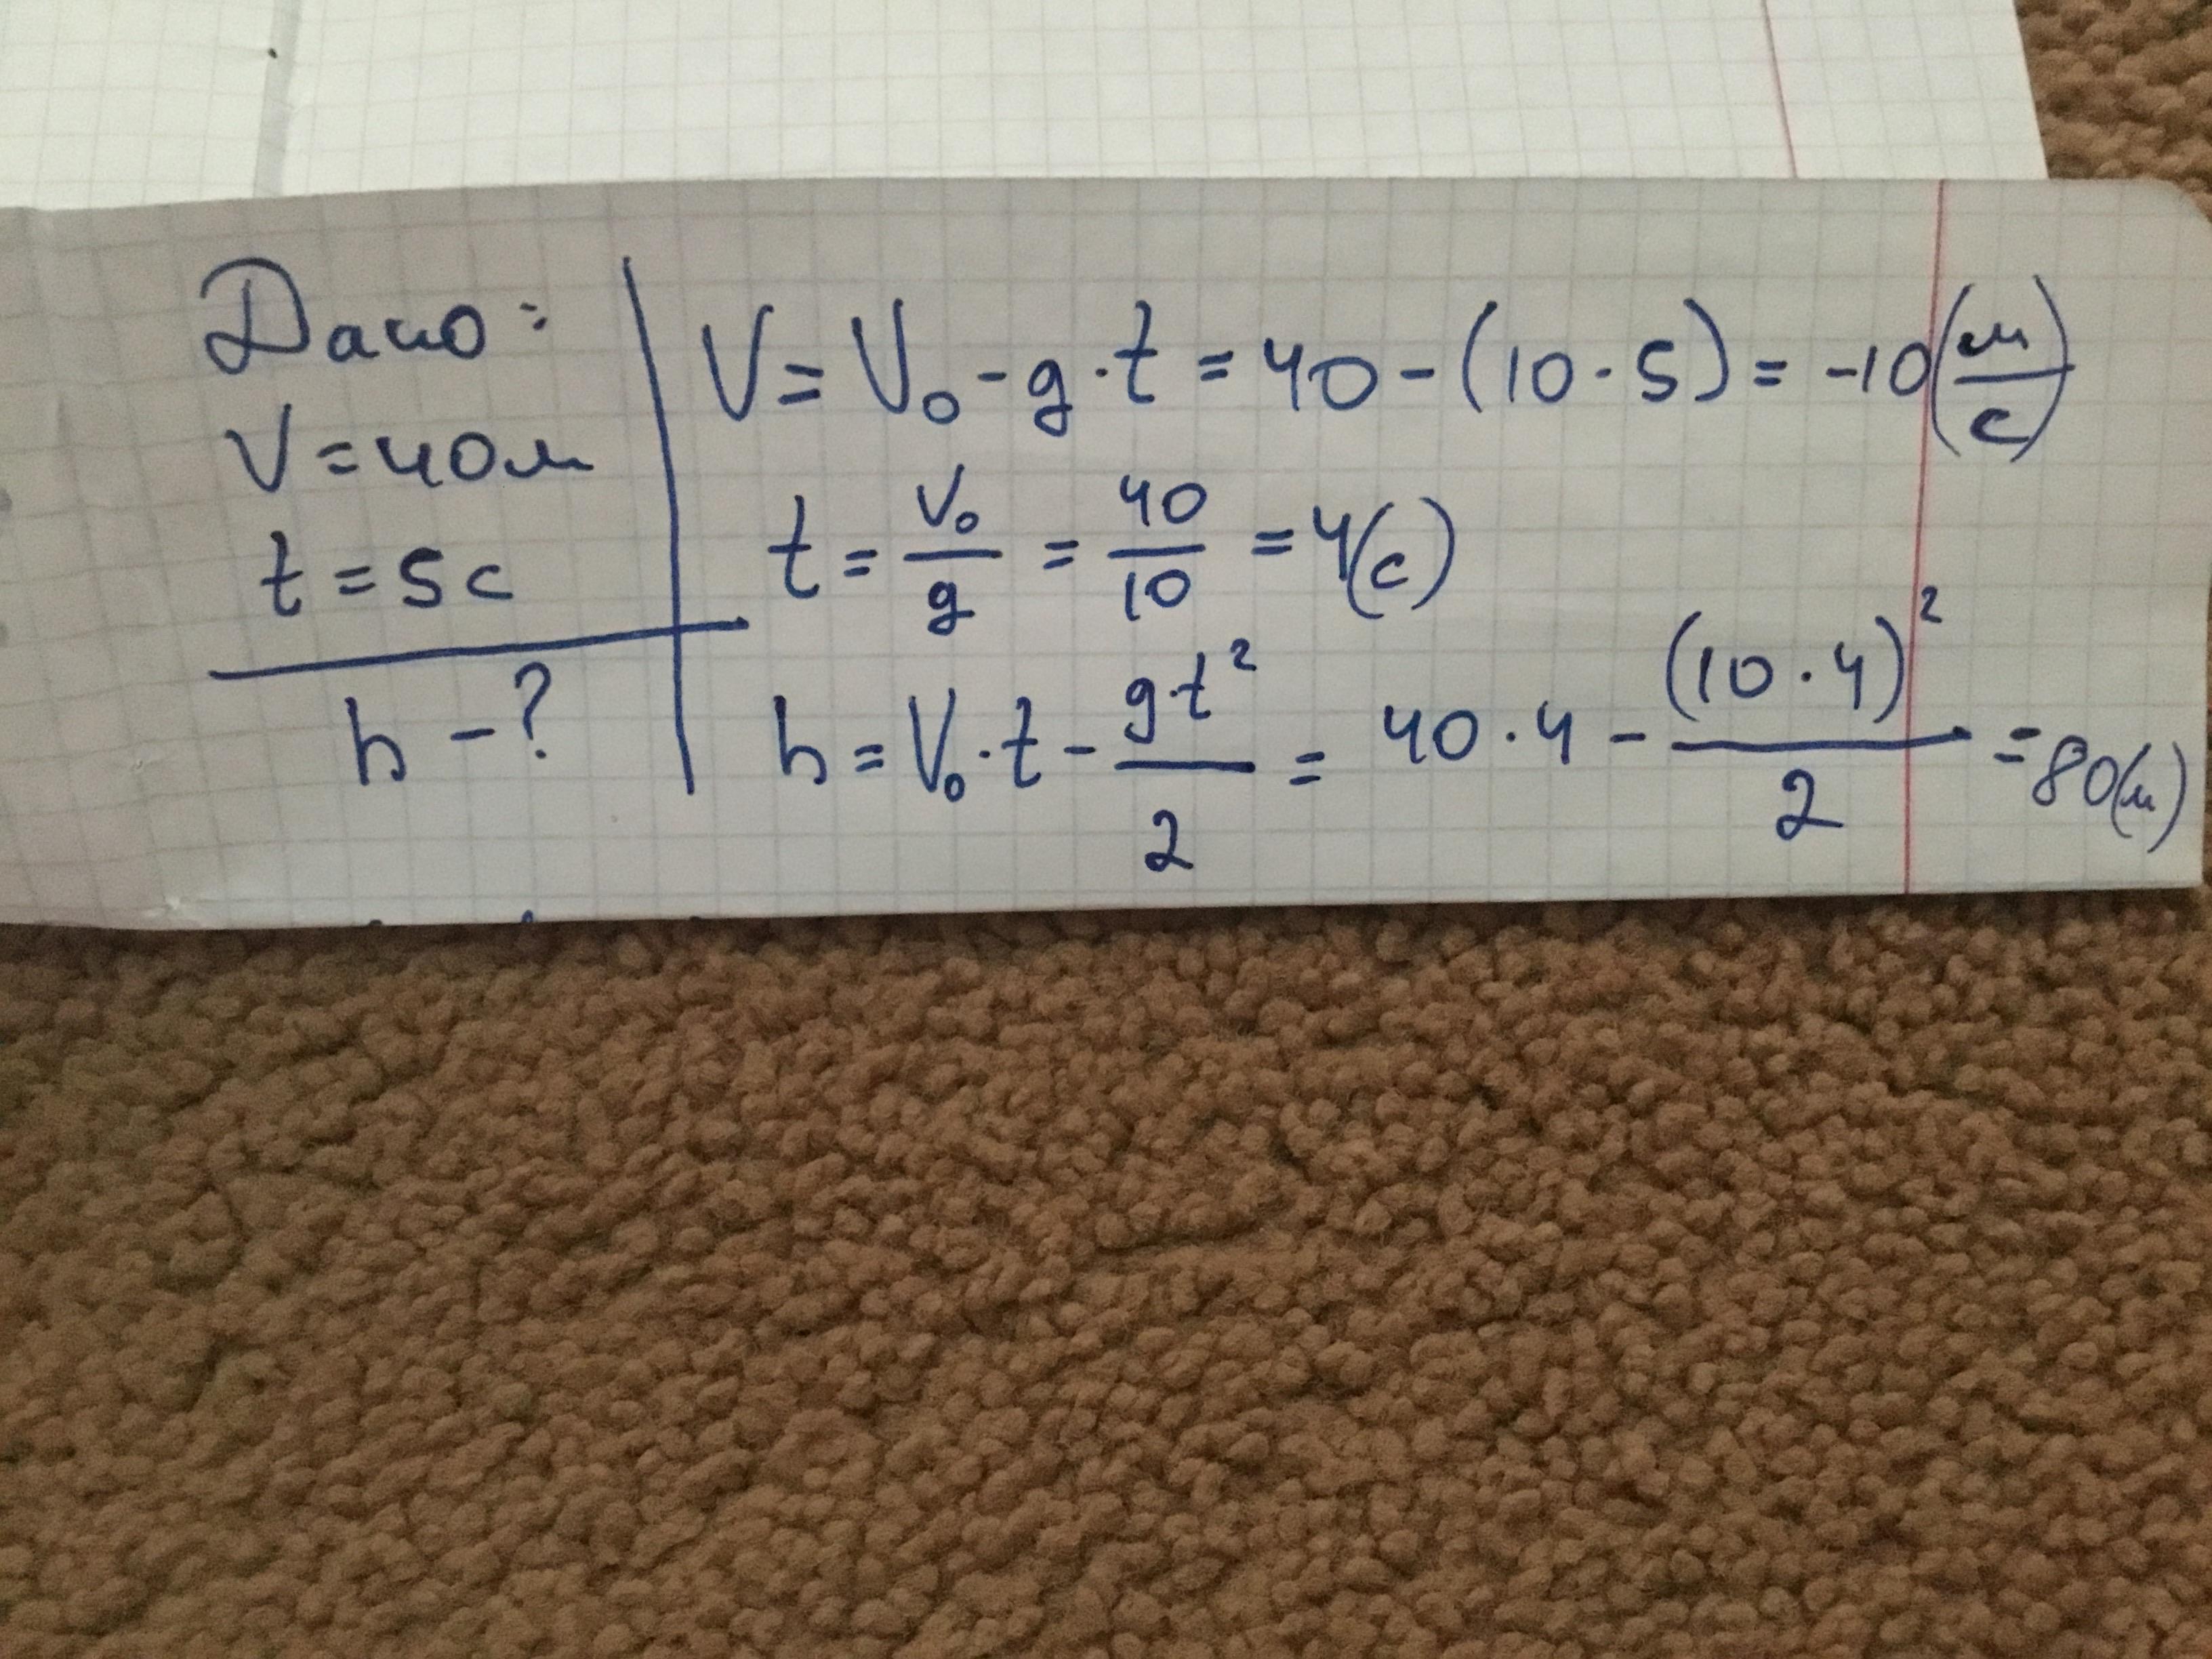 Дано:
V = 40м
t = 5с
h - ?
V = V₀ - g · t = 40 - (10 · 5) = -10 (м/с)
t = V₀/g = 40/10 = 4(с)
h = V₀ · t - g·t²/2 = 40 · 4 - (10 · 4)²/2 = 80(м)